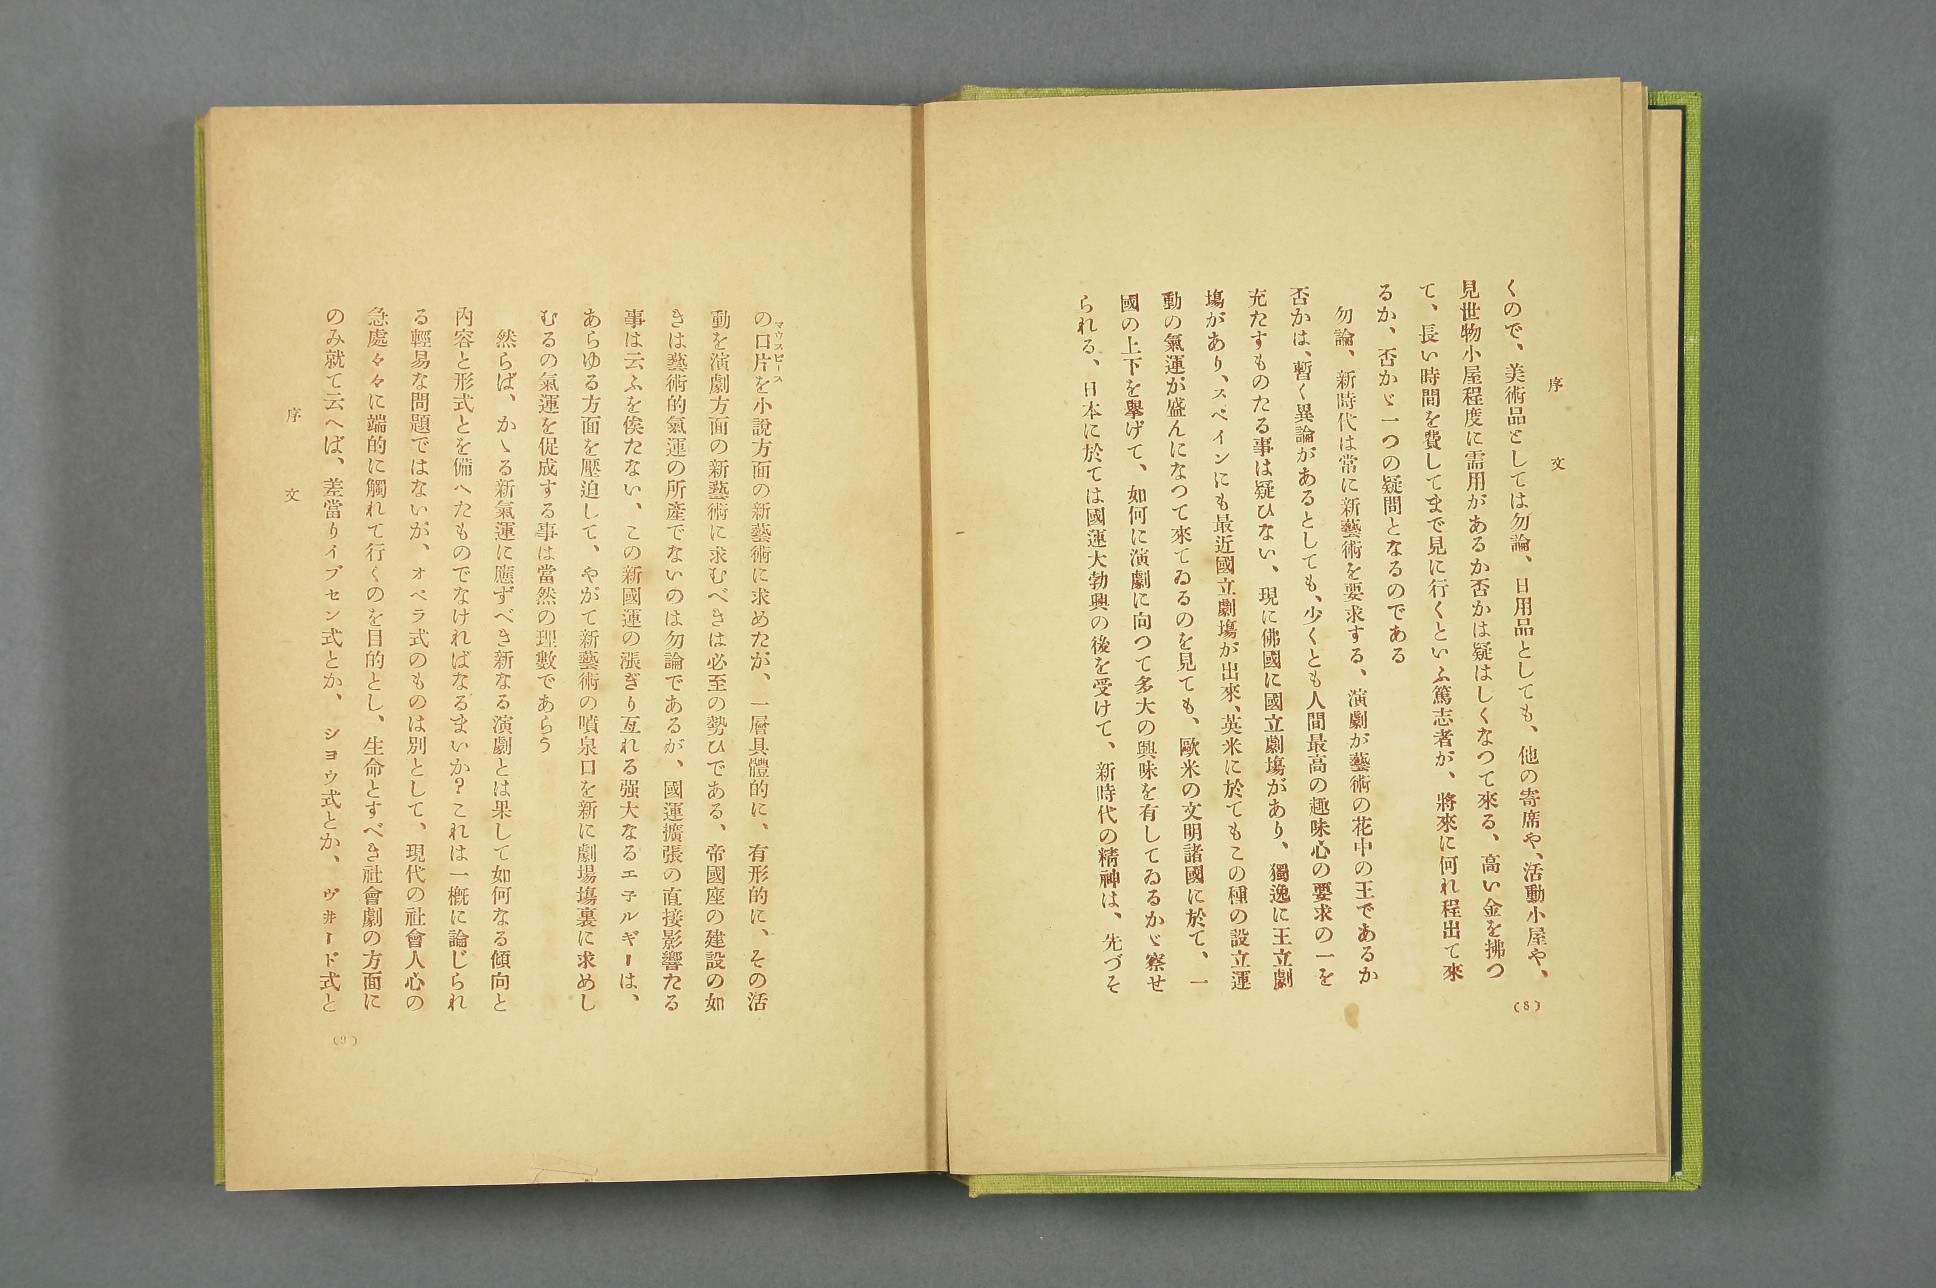 序文
くので、美術品としては勿論、日用品としても、他の寄席や、活動小屋や、
見世物小屋程度に需用があるか否かは疑はしくなつて來る、高い金を拂つ
て、長い時間を費してまで見に行くといふ篤志者が、將來に何れ程出て來
るか、否かゞ一つの疑問となるのである
勿論、新時代は常に新藝術を要求する、演劇が藝術の花中の王であるか
否かは、暫く異論があるとしても、少くとも人間最高の趣味心の要求の一を
充たすものたる事は疑ひない、現に佛國に國立劇塲があり、獨逸に王立劇
塲があり、スペインにも最近國立劇塲が出來、英米に於てもこの種の設立運
動の氣運が盛んになつて來てゐるのを見ても、歐米の文明諸國に於て、一
國の上下を擧げて、如何に演劇に向つて多大の興味を有してゐるかゞ察せ
られる、日本に於ては國運大勃興の後を受けて、新時代の精神は、先づそ
(8)
の口片を小說方面の新藝術に求めたが、一層具體的に、有形的に、その活
マウスピース
動を演劇方面の新藝術に求むべきは必至の勢ひである、帝國座の建設の如
きは藝術的氣運の所產でないのは勿論であるが、國運擴張の直接影響たる
事は云ふを俟たない、この新國運の漲ぎり亙れる强大なるエ子ルギーは、
あらゆる方面を壓迫して、やがて新藝術の噴泉口を新に劇場塲裏に求めし
むるの氣運を促成する事は當然の理數であらう
然らば、かゝる新氣運に應ずべき新なる演劇とは果して如何なる傾向と
內容と形式とを備へたものでなければなるまいか?これは一槪に論じられ
る輕易な問題ではないが、オペラ式のものは別として、現代の社會人心の
急處々々に端的に觸れて行くのを目的とし、生命とすべき社會劇の方面に
のみ就て云へば、差當りイプセン式とか、ショウ式とか、ヴヰード式と
序文
(9)